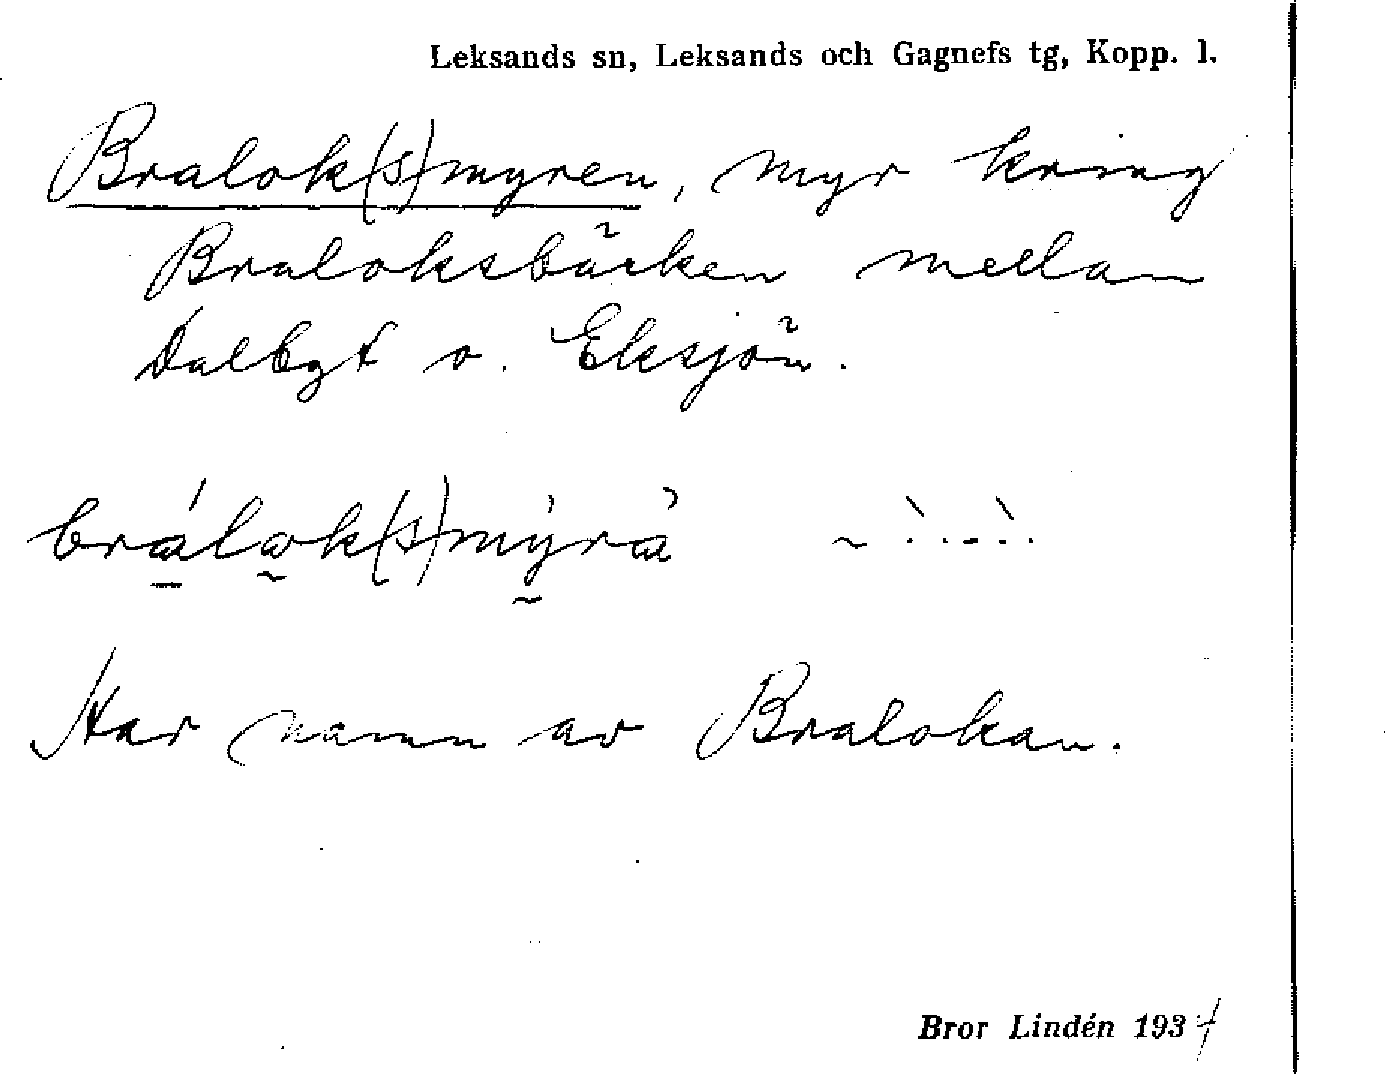 Leksands sn, Leksands och Gagnefs tg, Kopp. l.
Bralok(s)myren, myr kring
Braloksbäcken mellan
Dalbyt o. Eksjön.
brálok(s)mýra
Har namn av Bralokan.
Bror Lindén 1934